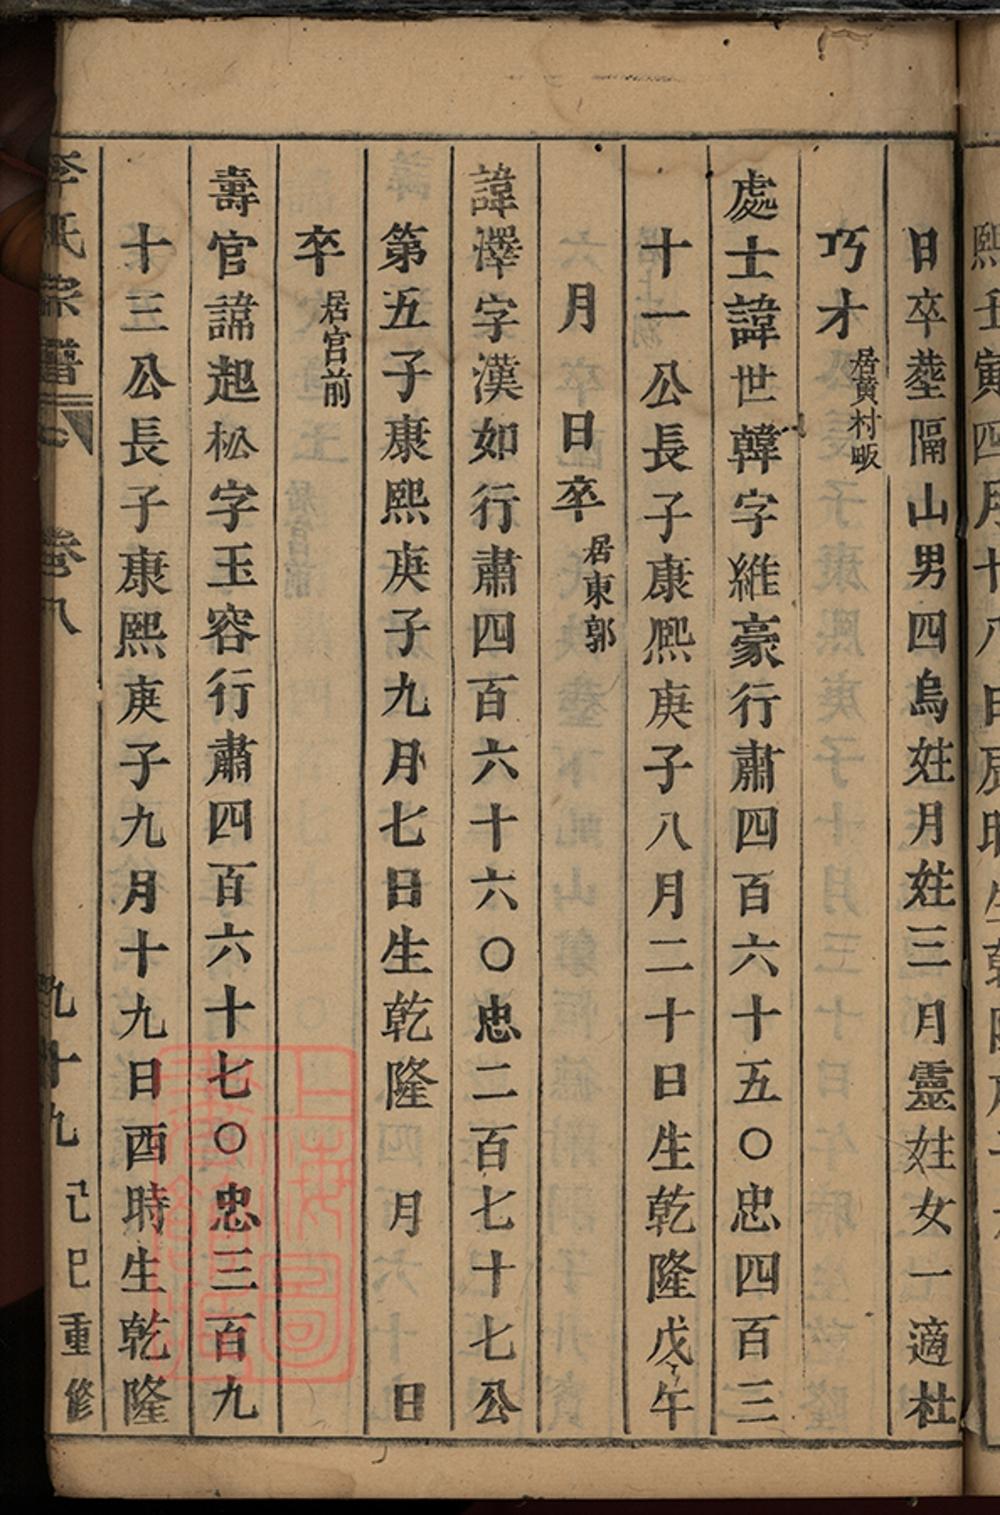 日卒塟隔山男四烏姓月姓三月靈姓女一適杜
巧才居黃村畈
處士諱世韓字維豪行肅四百六十五○忠四百三
十一公長子康熙庚子八月二十日生乾隆戊午
十月 日卒居東郭
諱澤字漢如行肅四百六十六○忠二百七十七公
第五子康熙庚子九月七日生乾隆 月 日
卒居官前
壽官諱起松字玉容行肅四百六十七○忠三百九
十三公長子康熙庚子九月十九日酉時生乾隆
李氏宗譜 卷八 九十九 己巳重修